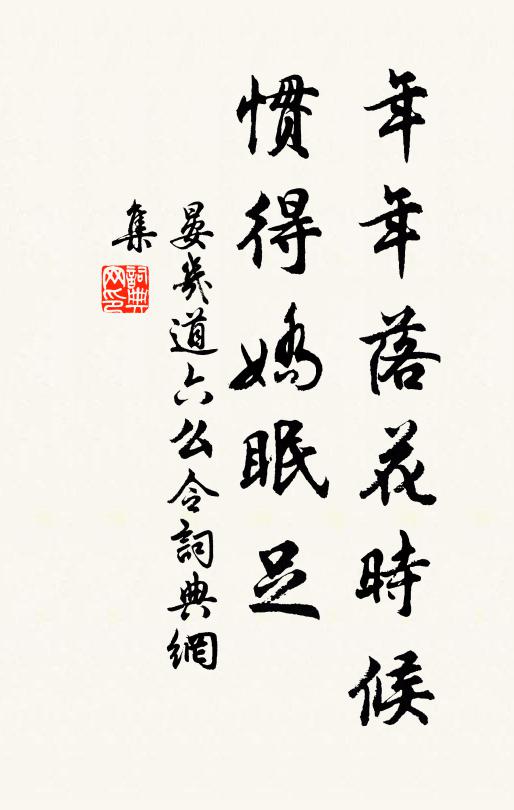 年年落花時候
慣得嬌眠足
晏幾道六么令詞典網
集
詞典
网印